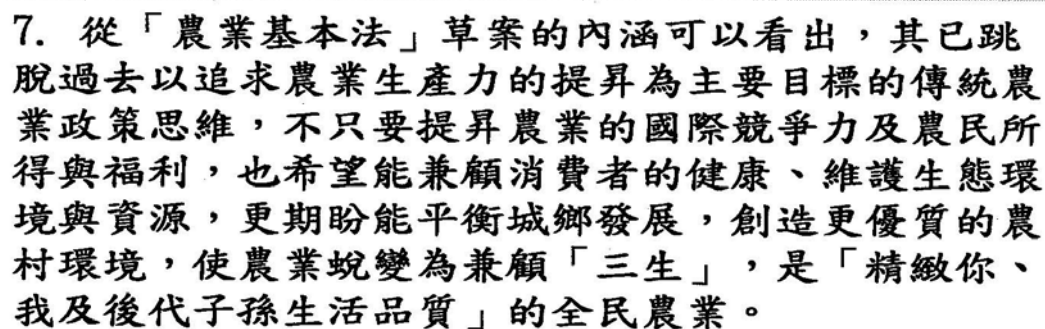 7. 從「農業基本法」草案的內涵可以看出，其已跳
脫過去以追求農業生產力的提昇為主要目標的傳統農
業政策思維，不只要提昇農業的國際競爭力及農民所
得與福利，也希望能兼顧消費者的健康、維護生態環
境與資源，更期盼能平衡城鄉發展，創造更優質的農
村環境，使農業蛻變為兼顧「三生」，是「精緻你、
我及後代子孫生活品質」的全民農業。